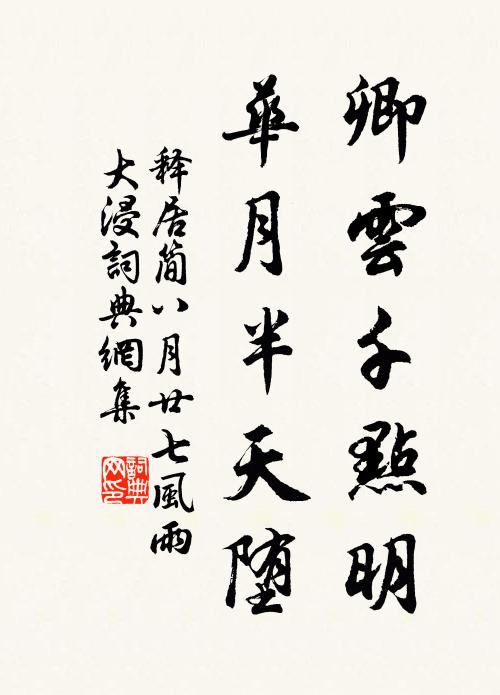 卿雲千點明
華月半天墮
释居簡八月廿七風雨
大浸詞典網集
詞典網印